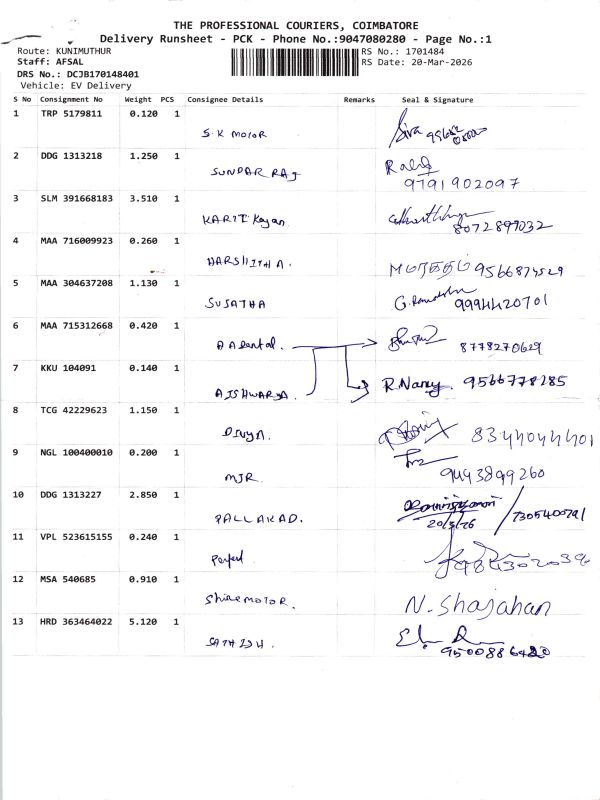 THE PROFESSIONAL COURIERS, COIMBATORE
Delivery Runsheet - PCK - Phone No.:9047080280 - Page No.:1
Route: KUNIMUTHUR RS No.: 1701484
Staff: AFSAL RS Date: 20-Mar-2026
DRS No.: DCJB170148401
Vehicle: EV Delivery
S No Consignment No Weight PCS Consignee Details Remarks Seal & Signature
1 TRP 5179811 0.120 1
S.K MOTOR Siva
2 DDG 1313218 1.250 1
SUNDAR RAJ
9791902097
3 SLM 391668183 3.510 1
8072899032
4 MAA 716009923 0.260 1
HARSHITHA.
5 MAA 304637208 1.130 1
SUJATHA 9994420701
6 MAA 715312668 0.420 1
8778270629
7 KKU 104091 0.140 1
AISHWARYA. R.Nancy. 9566778285
8 TCG 42229623 1.150 1
DIVYA. 8344044401
9 NGL 100400010 0.200 1
MJR. 9443899260
10 DDG 1313227 2.850 1
PALLAKAD. 20/3/26
11 VPL 523615155 0.240 1
Perfect
12 MSA 540685 0.910 1
Shinemotor. N. Shajahan
13 HRD 363464022 5.120 1
SATHISH.
9500886420